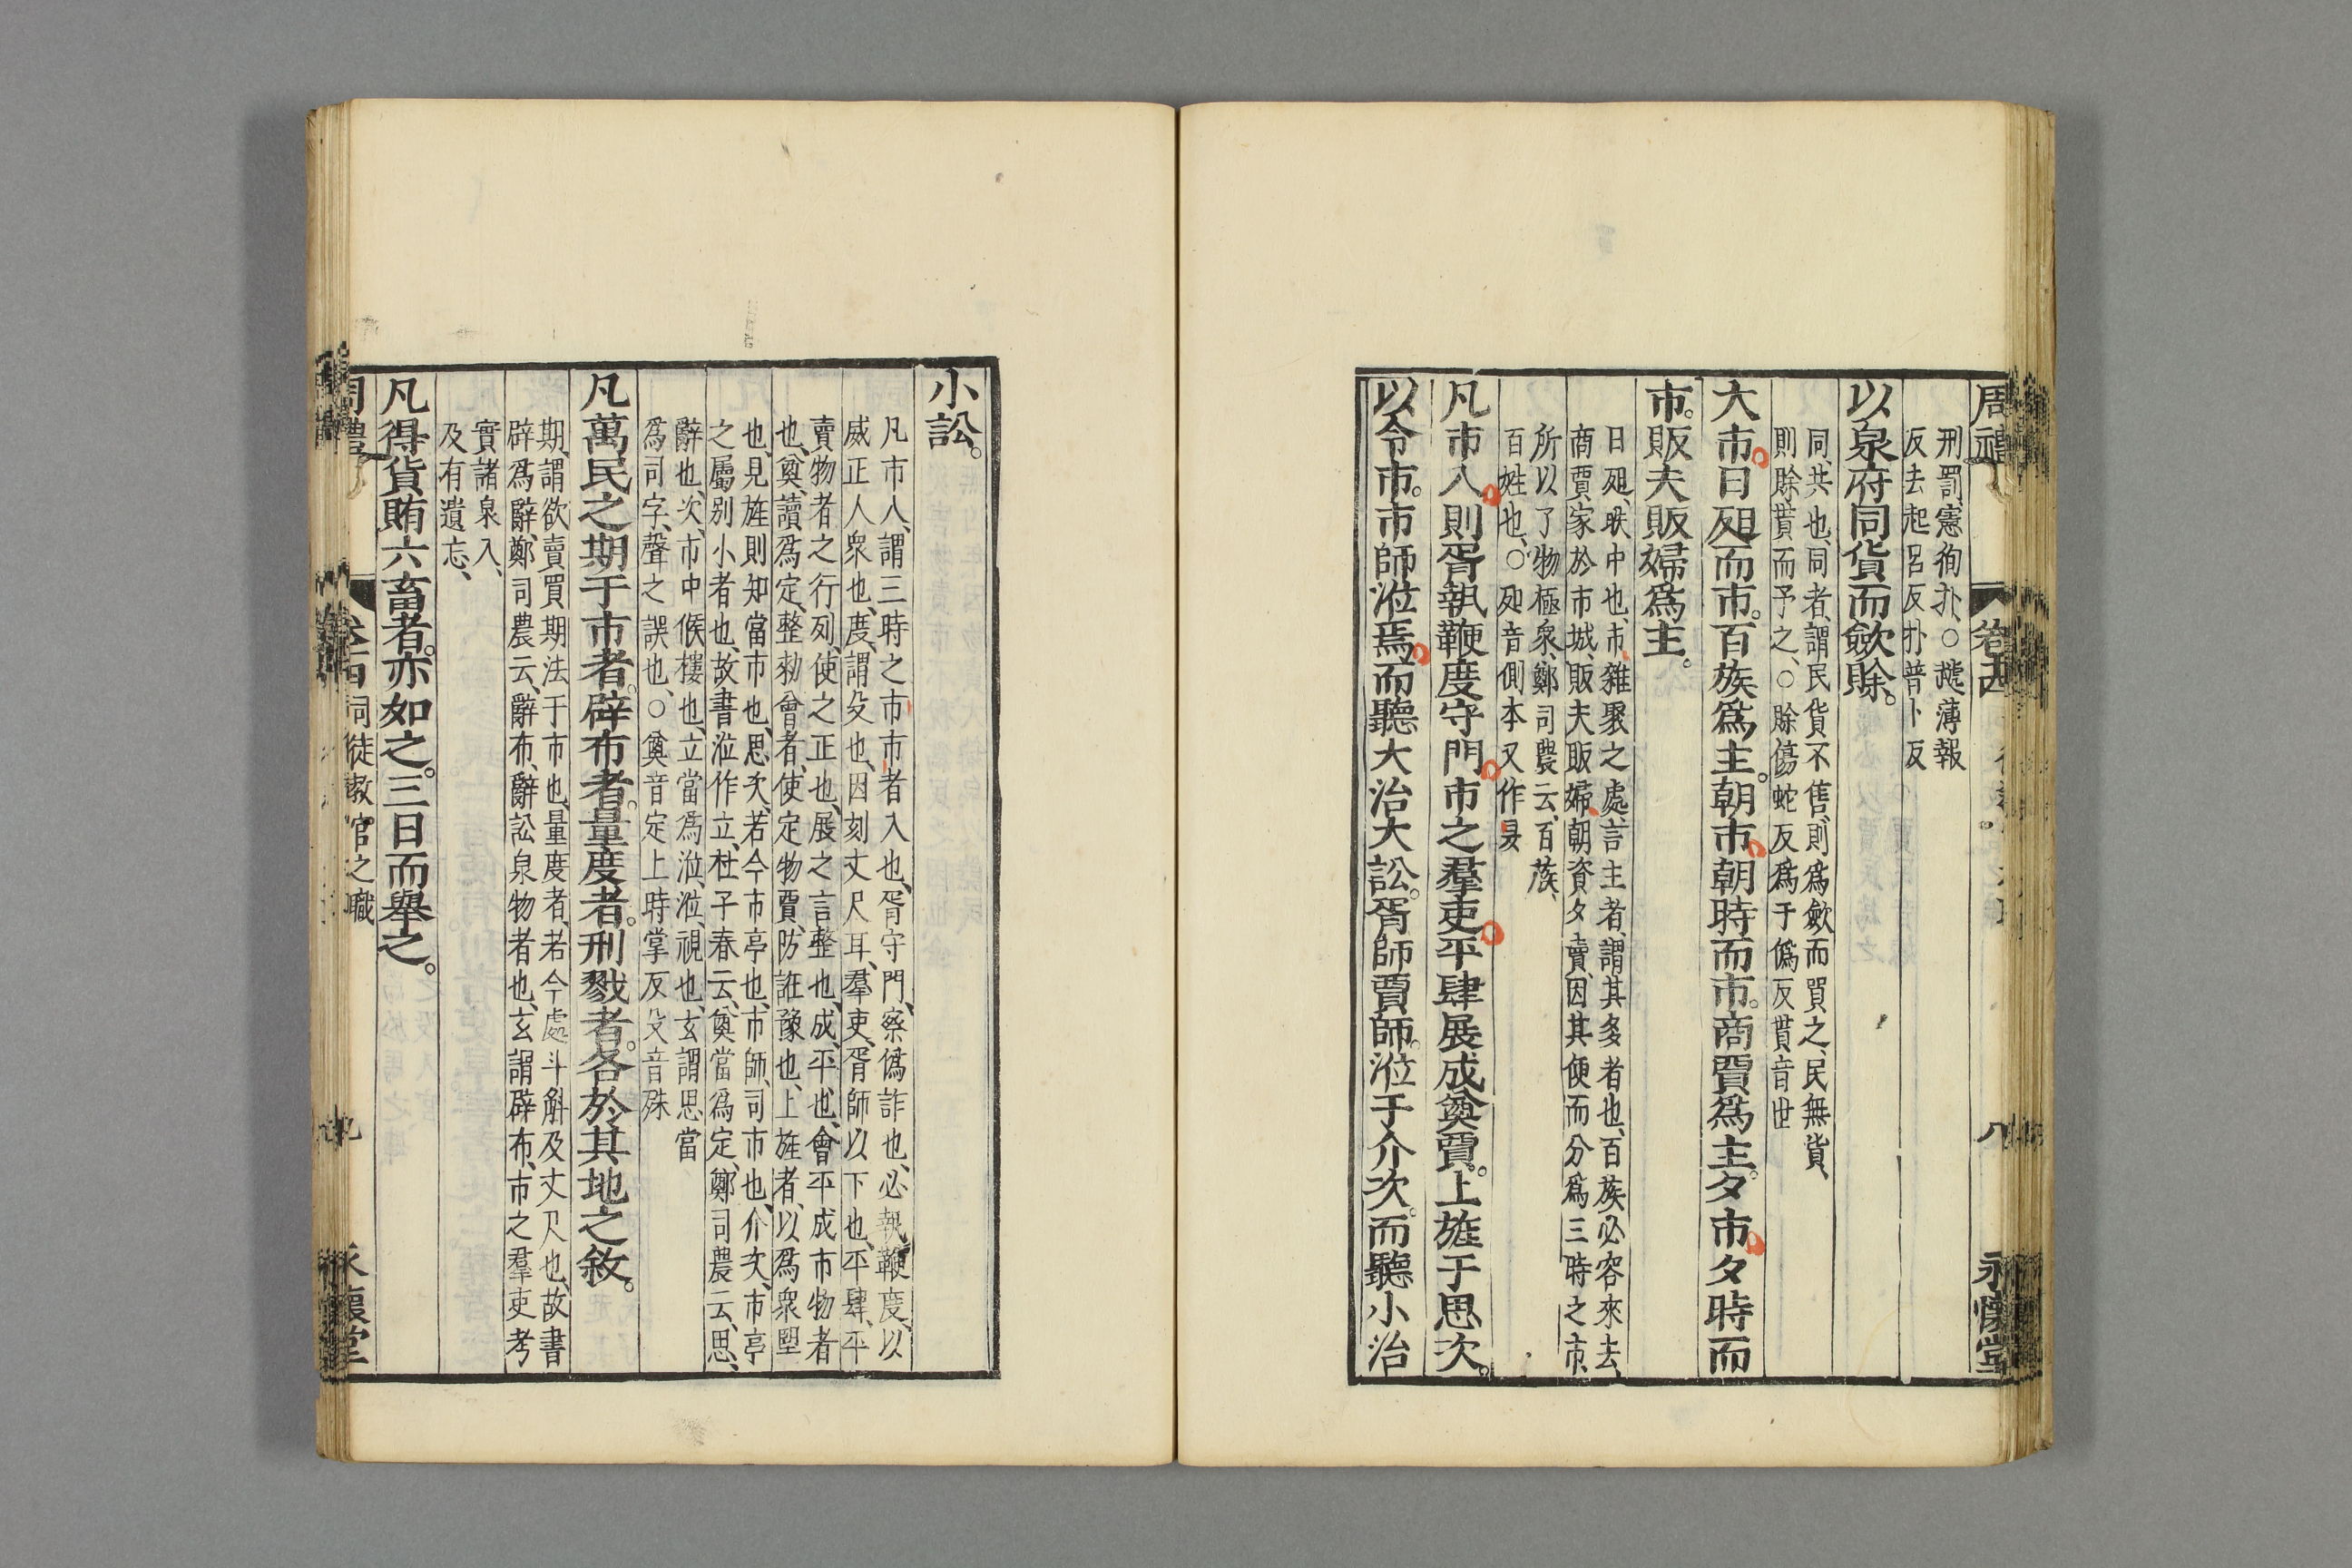 周禮
卷四
八
永懷堂
刑罰、憲徇扑、○摝薄報
反去起呂反扑普卜反
以泉府同貨而斂賖。
同、共也、同者、謂民貨不售、則爲斂而買之、民無貨、
則賖貰而予之、○賖傷蛇反爲于僞反貰音世
大市日𣅔而市。百族爲主。朝市朝時而市。商賈爲主。夕市夕時而
市。販夫販婦爲主。
日𣅔、昳中也、市、雜聚之處、言主者、謂其多者也、百族必容來去、
商賈家於市城、販夫販婦、朝資夕賣、因其便而分爲三時之市、
所以了物極衆、鄭司農云、百族、
百姓也、○𣅔音側本又作昃
凡市入則胥執鞭度守門市之羣吏平肆展成奠賈。上旌于思次。
以令市。市師涖焉。而聽大治大訟。胥師賈師。涖于介次。而聽小治
小訟。
凡市入、謂三時之市市者入也、胥守門、察僞詐也、必執鞭度、以
威正人衆也、度、謂殳也、因刻丈尺耳、羣吏、胥師以下也、平肆、平
賣物者之行列、使之正也、展之言整也、成、平也、會平成市物者
也、奠、讀爲定、整勑會者、使定物賈、防誑豫也、上旌者、以爲衆望
也、見旌則知當市也、思次、若今市亭也、市師、司市也、介次、市亭
之屬别小者也、故書涖作立、杜子春云、奠當爲定、鄭司農云、思、
辭也、次、市中候樓也、立當爲涖、涖、視也、玄謂思當
爲司字、聲之誤也、○奠音定上時掌反殳音殊
凡萬民之期于市者。辟布者。量度者。刑戮者。各於其地之敘。
期、謂欲賣買期法于市也、量度者、若今處斗斛及丈尺也、故書
辟爲辭、鄭司農云、辭布、辭訟泉物者也、玄謂辟布、市之羣吏考
實諸泉入、
及有遺忘、
凡得貨賄六畜者。亦如之。三日而舉之。
周禮
卷四 司徒敎官之職
九
永懷堂